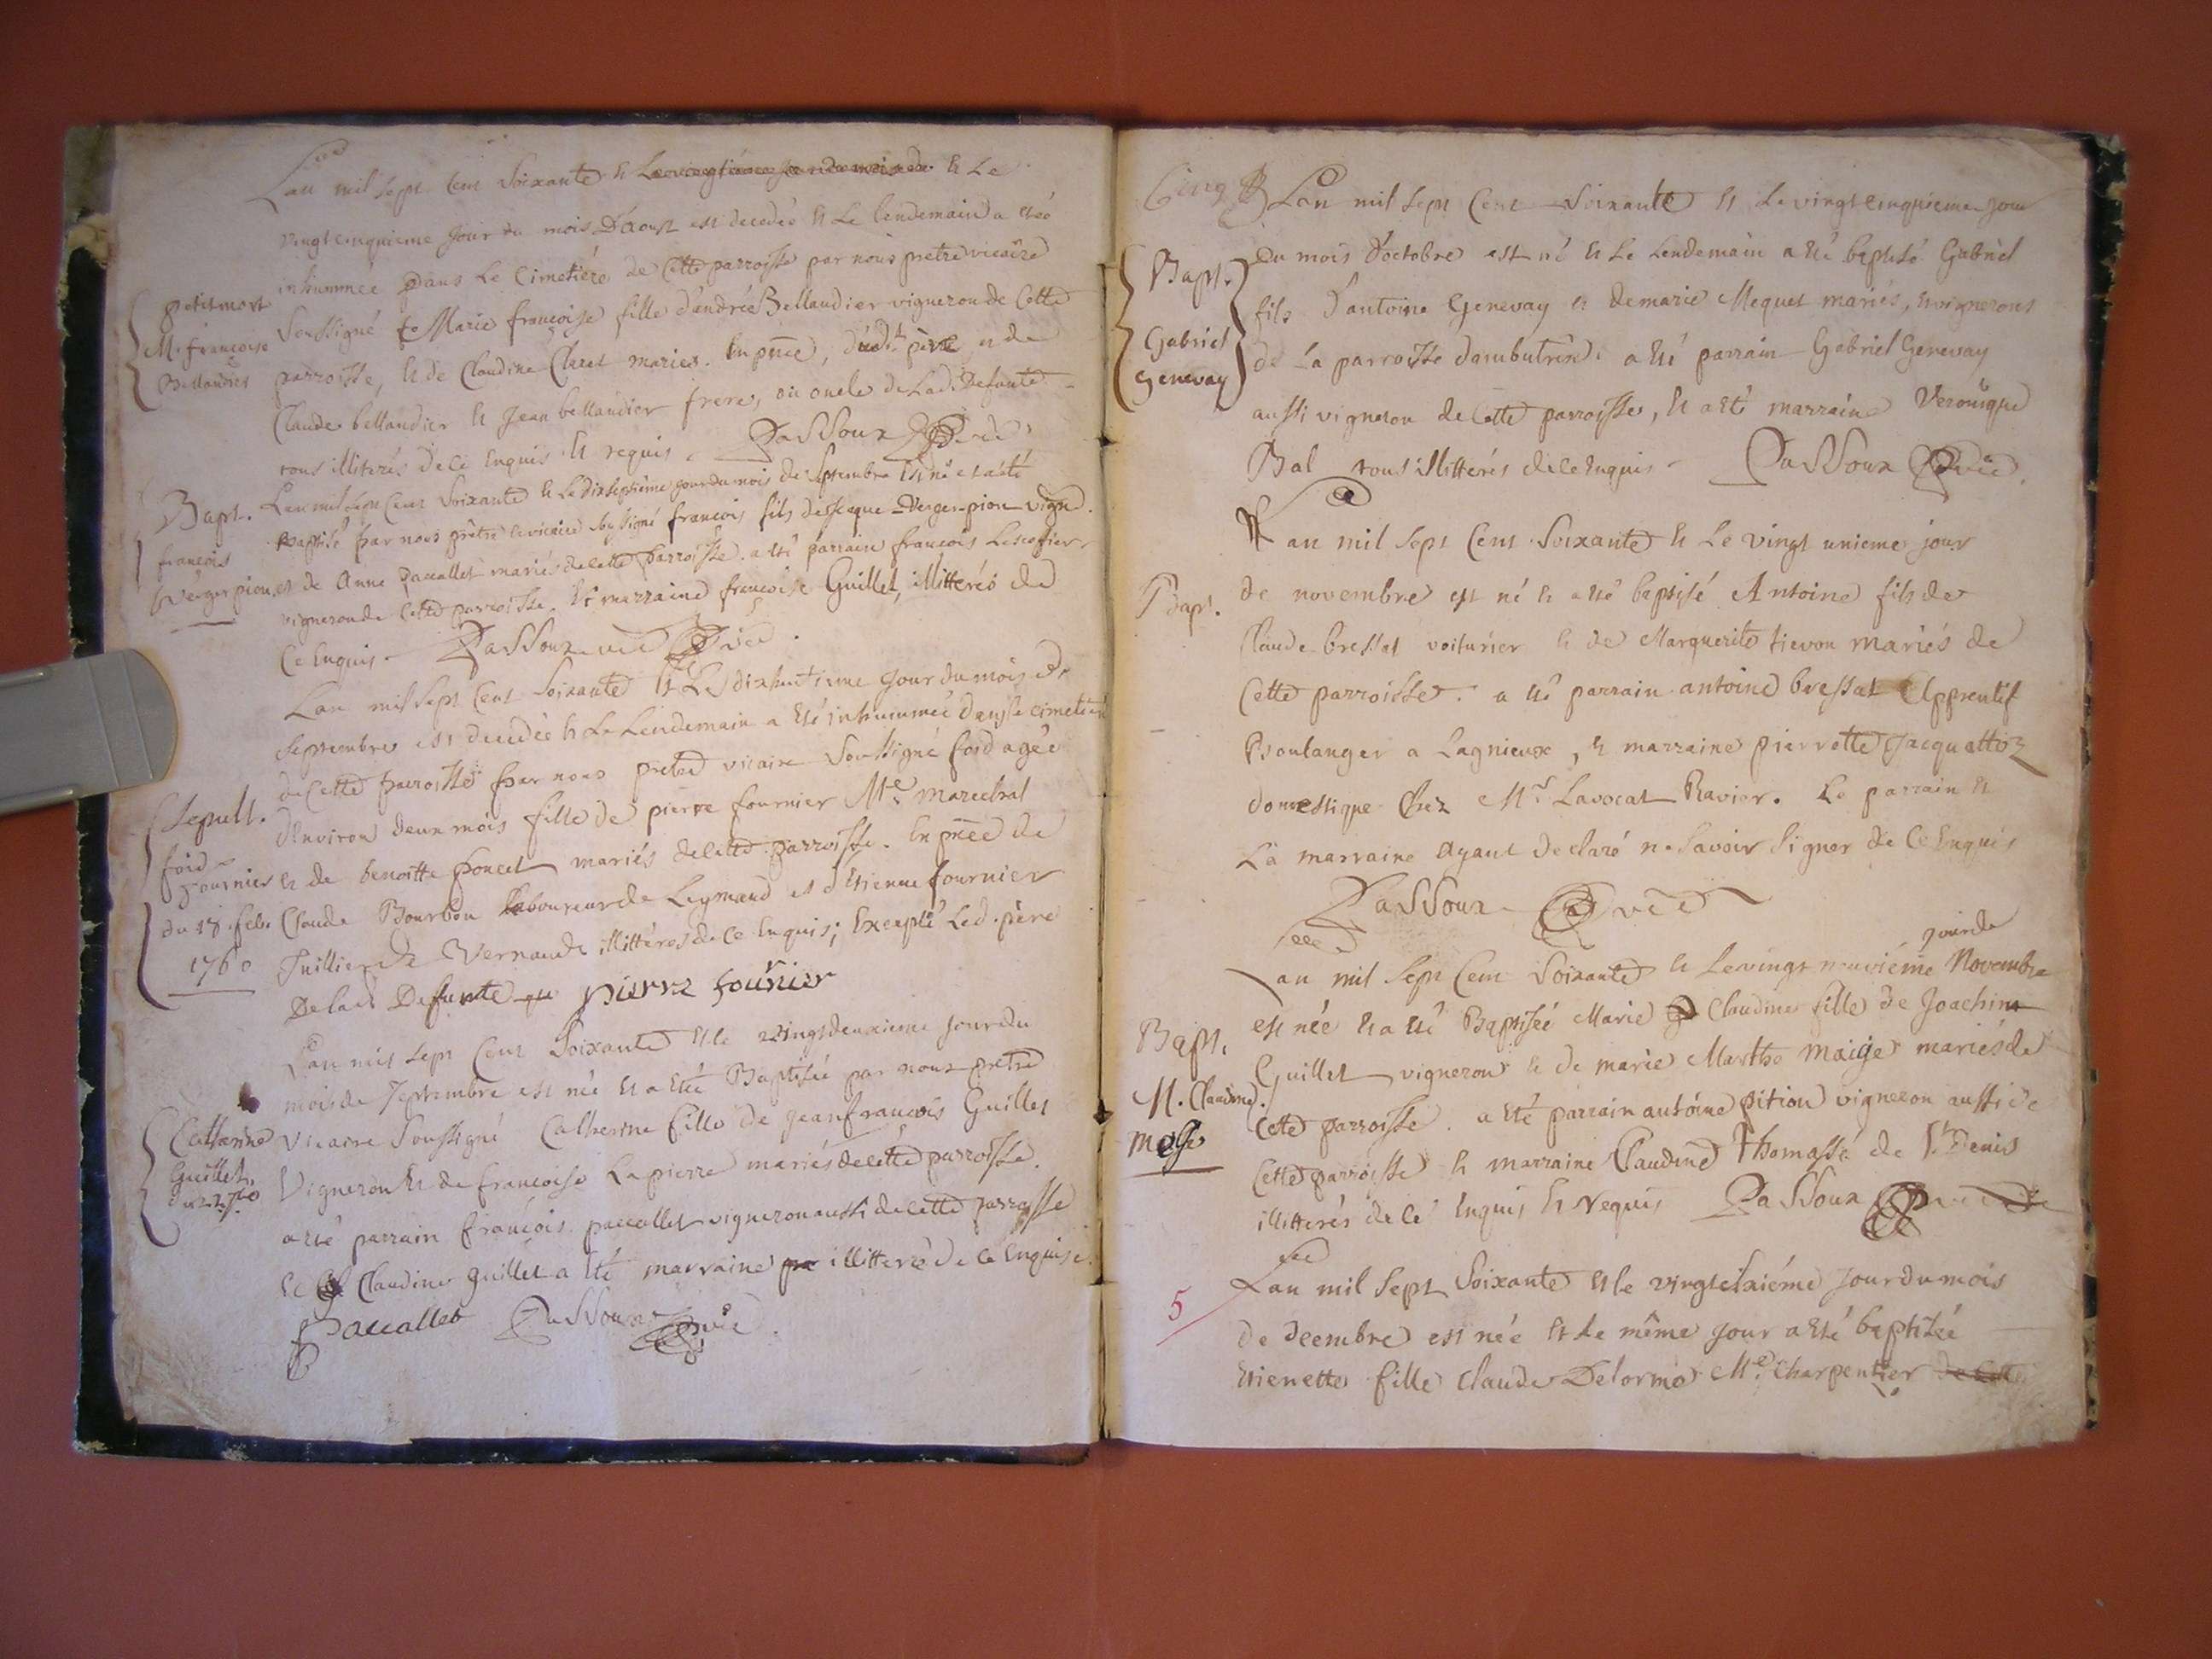 L'an mil sept cent soixante et le
vingtcinquieme jour du mois D'aoust est decedée et Le lendemain a été
inhummée Dans Le Cimetiére de Cette parroisse par nous pretre vicaire
petit mort
M. françoise
Bellaudier
Soussigné Marie françoise fille d'andré Bellaudier vigneron de Cette
parroisse, et de Claudine Claret mariés. En pñce, dudt. père et de
Claude bellaudier et Jean bellaudier frere, ou oncle de Lad. Defunte
tous illiterés de ce Enquis et requis. Passoux vic
Bapt.
françois
Verger pion
Lan mil sept Cent Soixante et Le dixseptième jour du mois de Septembre Est né et a été
Baptisé par nous prêtre et vicaire soussigné françois fils de Jaque Verger-pion vigne.
et de Anne Paccallet mariés de cette parroisse. a été parrain françois Lescofier
vigneron de Cette parroisse. Et marraine françoise Guillet, illitterés de
Ce Enquis. Passoux vic
Lan mil sept Cent Soixante Et Le dixhuitieme jour du mois de
Septembre est decedée et Le Lendemain a été inhummée dans le cimetière
de Cette parroisse par nous pretre vicaire Soussigné foid agée
Sepult.
foid
fournier
du 18 feb.
1760
d'Environ deux mois fille de pierre fournier Me. marechal
et de benoitte poncet mariés de cette parroisse. En pñce de
Claude Bourbon laboureur de Leymand et d'Etienne fournier
Juillier de Vernaud illitterés de Ce Enquis; Excepté Led. père
De lad. Defunte pierre fournier
Lan mil sept Cent Soixante Et le vingtdeuxieme jour du
mois de Septembre est née et a été Baptisée par nous pretre
Catherine
Guillet,
vicaire Soussigné Catherine fille de jean françois Guillet
Vigneron Et de francoise Lapierre mariés de cette parroisse.
a été parrain françois paccallet vigneron aussi de cette parroisse
Et Claudine guillet a été marraine illitteré de ce Enquise.
Paccallet Passoux vic
Cinq Lan mil sept Cent Soixante et Le vingtcinquieme jour
Du mois d'octobre est né et Le Lendemain a été baptisé Gabriel
Bapt.
Gabriel
Genevay
fils D'antoine Genevay et de marie Mequet mariés, et vignerons
de La parroisse dambutrix. a été parrain Gabriel Genevay
aussi vigneron de Cette parroisse, et a été marraine Veronique
Bal tous illitterés de ce Enquis. Passoux vic.
Lan mil sept Cent Soixante et Le vingt unieme jour
Bapt.
de novembre est né et a été baptisé Antoine fils de
Claude bressat voiturier et de Marguerite tievon mariés de
Cette parroisse. a été parrain antoine bressat Apprentif
Boulanger a Lagnieux, et marraine pierrette Jacquattoz
domestique Chez Mr. Lavocat Ravier. Le parrain et
La marraine ayant declaré ne Savoir Signer de Ce Enquis
Passoux vic
Lan mil sept Cent Soixante et Le vingt neuviéme jour de Novembre
Bapt.
M. Claudine.
est née et a été Baptisée Marie Claudine fille de Joachim
Guillet vigneron et de marie Marthe maige mariés de
Cette parroisse. a été parrain antoine pition vigneron aussi de
Cette parroisse et marraine Claudine thomassé de St. Denis
illitterés de Ce Enquis et requis Passoux vic
5
Lan mil Sept Soixante et le vingtsixiéme Jour du mois
de decembre est née Et Le même jour a été baptisée
Etienette fille Claude Delorme Me. Charpentier